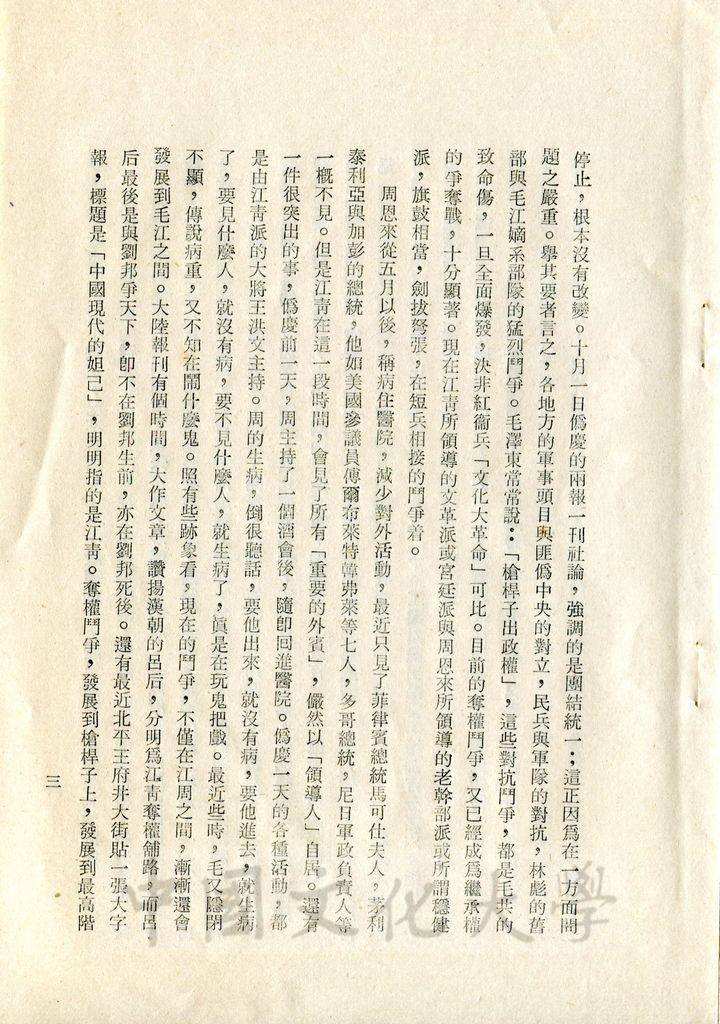 停止，根本沒有改變。十月一日僞慶的兩報一刊社論，強調的是團結統一；這正因爲在一方面問
題之嚴重。舉其要者言之，各地方的軍事頭目與匪僞中央的對立，民兵與軍隊的對抗，林彪的舊
部與毛江嫡系部隊的猛烈鬥爭。毛澤東常常說：「槍桿子出政權」，這些對抗鬥爭，都是毛共的
致命傷，一旦全面爆發，決非紅衞兵「文化大革命」可比。目前的奪權鬥爭，又已經成爲繼承權
的爭奪戰，十分顯著。現在江靑所領導的文革派或宮廷派與周恩來所領導的老幹部派或所謂穩健
派，旗鼓相當，劍拔弩張，在短兵相接的鬥爭着。
周恩來從五月以後，稱病住醫院，減少對外活動，最近只見了菲律賓總統馬可仕夫人，茅利
泰利亞與加彭的總統，他如美國參議員傅爾布萊特韓弗萊等七人，多哥總統，尼日軍政負責人等
一概不見。但是江靑在這一段時間，會見了所有「重要的外賓」，儼然以「領導人」自居。還有
一件很突出的事，僞慶前一天，周主持了一個酒會後，隨卽回進醫院。僞慶一天的各種活動，都
是由江靑派的大將王洪文主持。周的生病，倒很聽話，要他出來，就沒有病，要他進去，就生病
了，要見什麼人，就沒有病，要不見什麼人，就生病了，眞是在玩鬼把戲。最近些時，毛又隱閉
不顯，傳說病重，又不知在鬧什麼鬼。照有些跡象看，現在的鬥爭，不僅在江周之間，漸漸還會
發展到毛江之間。大陸報刊有個時間，大作文章，讚揚漢朝的呂后，分明爲江靑奪權舖路，而呂
后最後是與劉邦爭天下，卽不在劉邦生前，亦在劉邦死後。還有最近北平王府井大街貼一張大字
報，標題是「中國現代的妲己」，明明指的是江靑。奪權鬥爭，發展到槍桿子上，發展到最高階
三
中國文化大學